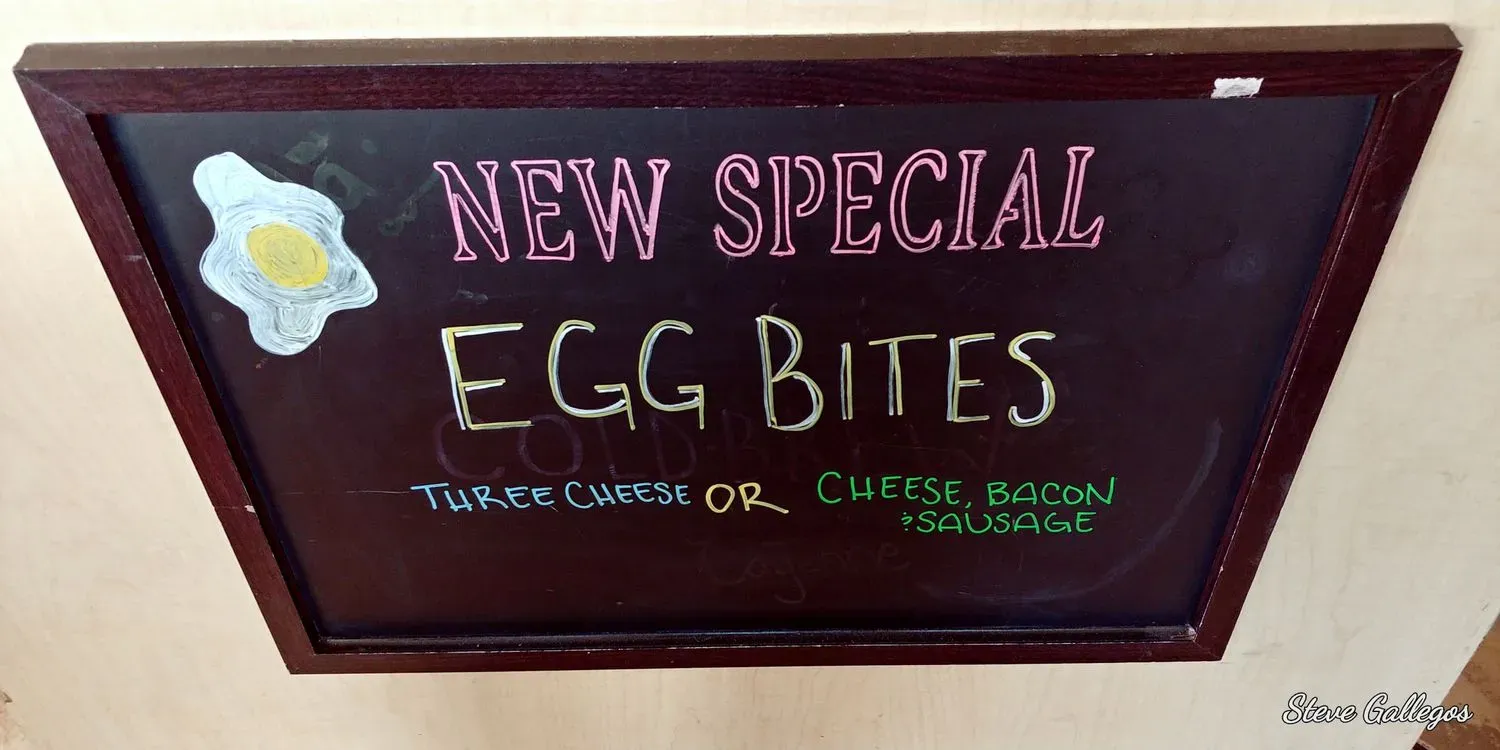 NEW SPECIAL
EGG BITES
COLD BREW
THREE CHEESE OR CHEESE, BACON
& SAUSAGE
Steve Gallegos